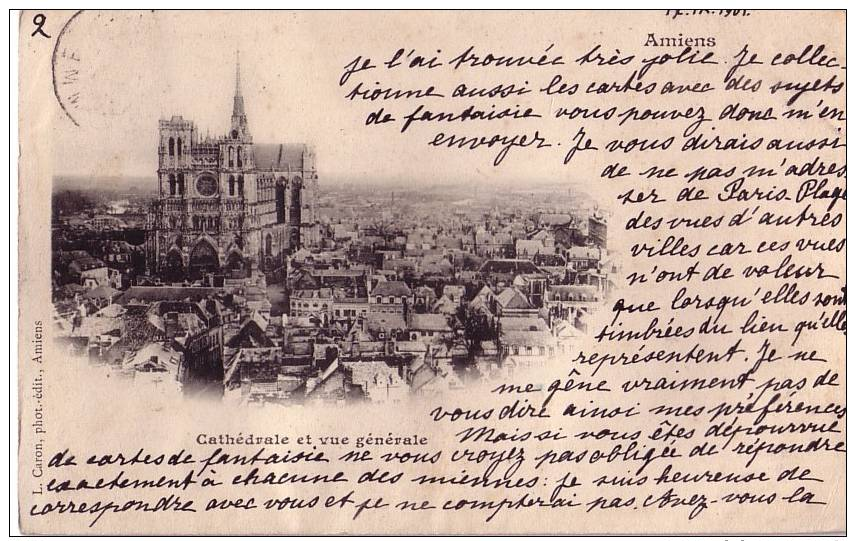 2
17.IX.1901.
Amiens
je l'ai trouvée très jolie. Je collec-
tionne aussi les cartes avec des sujets
de fantaisie vous pouvez donc m'en
envoyer. Je vous dirais aussi
de ne pas m'adres
ser de Paris-Plage
des vues d'autres
villes car ces vues
n'ont de valeur
que lorsqu'elles sont
timbrées du lieu qu'elles
représentent. Je ne
me gêne vraiment pas de
vous dire ainsi mes préférences
Mais si vous êtes dépourvue
de cartes de fantaisie ne vous croyez pas obligée de répondre
exactement à chacune des miennes: je suis heureuse de
correspondre avec vous et je ne compterai pas. Avez-vous la
Cathédrale et vue générale
L. Caron, phot.-édit., Amiens